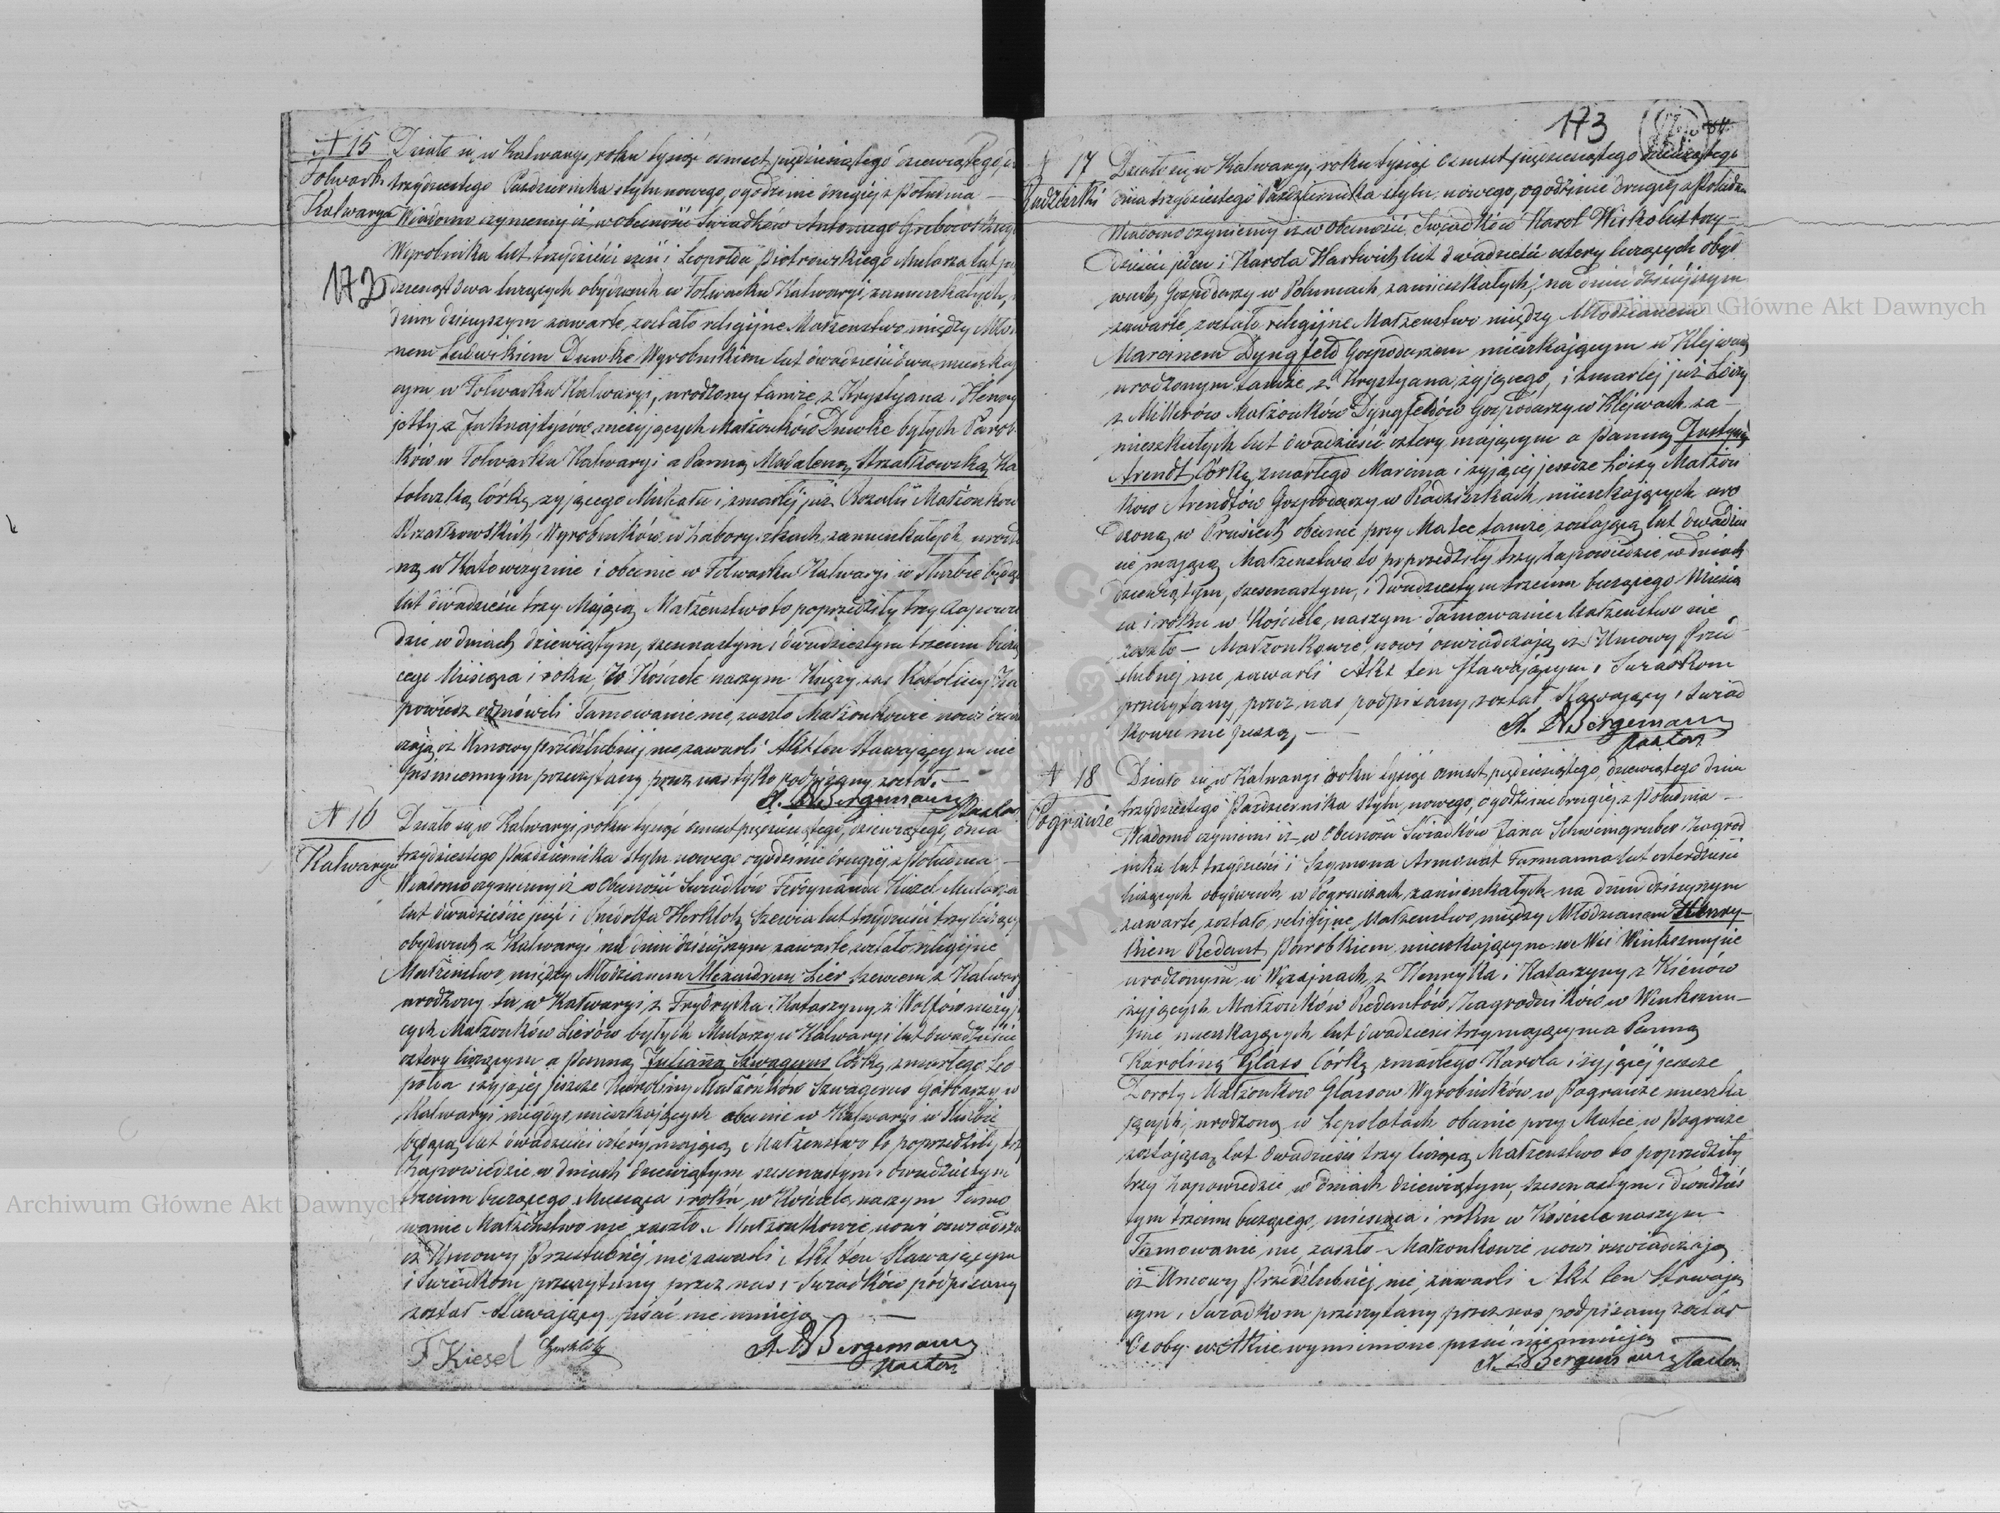 172
N 15
Folwark
Kalwarya
Działo się w Kalwaryi, roku tysiąc osmset pięćdziesiątego dziewiątego,
trzydziestego Października stylu nowego, o godzinie drugiej z południa —
Wiadomo czyniemy iż w obecności Świadków Antoniego Grabowskiego
Wyrobnika lat trzydzieści sześć i Leopolda Piotrowskiego Mularza lat
dziesiąt dwa liczących obydwuch w Folwarku Kalwaryi, zamieszkałych,
dniu dzisiejszym zawarte, zostało religijne Małżenstwo między Młodzia
nem Ludwikiem Dumke Wyrobnikiem lat dwadzieścia dwa mieszkaj
cym w Folwarku Kalwaryi, urodzony tamże, z Krystyana i Henry
jetty z małżonków Dumke byłych Parob
ków w Folwarku Kalwaryi a Panną Madaleną Strzałkowską, Ka
toliczką Córką, żyjącego Michała i zmarłej już Rozalii Małżonków
Wyrobników w zamieszkałych urodzo
ną w i obecnie w Folwarku Kalwaryi w służbie będąc
lat dwadzieścia trzy Mającą Małżenstwo to poprzedziły trzy Zapowie
dzie w dniach dziewiątym, szesnastym i dwudziestym trzecim bieżą
cego Miesiąca i roku, w Kościele naszym Księży zaś Katolicy Za
powiedz odmówili Tamowanie nie zaszło Małżonkowie nowi oświad
czają iż Umowy Przedślubnej nie zawarli Akt ten Stawającym nie
piśmiennym przeczytany przez nas tylko podpisany został. —
A. Bergemann
Pastor
N 16
Kalwarya
Działo się w Kalwaryi, roku tysiąc osmset pięćdziesiątego, dziewiątego, dnia
trzydziestego Października stylu nowego o godzinie drugiej z południa —
Wiadomo czyniemy iż w Obecności Świadków Ferdynanda Kizel Mularza
lat dwadzieścia pięć i Herklotz Szewca lat trzydzieści trzy liczący
obydwuch z Kalwaryi, na dniu dzisiejszym zawarte zostało religijne
Małżenstwo, między Młodzianem Alexandrem Lier Szewcem, z Kalwary
urodzony tu, w Kalwaryi, z Frydrycha i Katarzyny, z Wolfów nieżyj
cych Małżonków Lierów byłych Mularzy w Kalwaryi lat dwadzieścia
cztery liczącym a Panną Julianną Szwagerus Córką, zmarłego Leo
polda i żyjącej jeszcze Karoliny Małżonków Szwagerus Garbarzy w
Kalwaryi niegdyś mieszkających obecnie w Kalwaryi w służbie
będącą lat dwadzieścia cztery mającą Małżenstwo to poprzedziły trzy
Zapowiedzie w dniach dziewiątym szesnastym i dwudziestym
trzecim bieżącego Miesiąca i roku, w Kościele naszym Tamo
wanie Małżenstwo nie zaszło. Małżonkowie nowi oświadcza
iż Umowy Przedślubnej nie zawarli, Akt ten Stawającym
i Świadkom przeczytany przez nas i Świadków podpisany
został Stawający, pisać nie umieją —
F. Kiesel Herklotz
A. Bergemann
Pastor
173
N 17
Radziszki
Działo się w Kalwaryi, roku tysiąc osmset pięćdziesiątego dziewiątego
dnia trzydziestego Października stylu, nowego, o godzinie drugiej z południa
Wiadomo czyniemy iż w Obecności Świadków Karol Wisko lat trzy—
dzieści jeden i Karola Hartwich lat dwadzieścia cztery liczących obyd
wuch Gospodarzy w Poluńcach, zamieszkałych, na dniu dzisiejszym
zawarte zostało religijne Małżenstwo między Młodzianem
Marcinem Dyngfeld Gospodarzem mieszkającym w Klejwach
urodzonym tamże, z Krystyana, żyjącego, i zmarłej już Loizy
z Millerów Małżonków Dyngfeldów Gospodarzy w Klejwach za—
mieszkałych lat dwadzieścia cztery mającym a Panną Justyną
Arendt Córką zmarłego Marcina i żyjącej jeszcze Loizy Małżon
ków Arendtów Gospodarzy w Radziszkach, mieszkających uro
dzoną w Prusiech obecnie przy Matce tamże, zostającą lat dwadzie
ścia mającą Małżenstwo to poprzedziły trzy Zapowiedzie w dniach
dziewiątym, szesnastym, i dwudziestym trzecim bieżącego Miesią
ca i roku w Kościele, naszym Tamowanie Małżenstwo nie
zaszło — Małżonkowie nowi oświadczają iż Umowy Przed
ślubnej nie zawarli Akt ten Stawającym i Świadkom
przeczytany, przez nas podpisany został Stawający i Świad
kowie nie piszą, —
A. Bergemann
Pastor
N 18
Pograuże
Działo się, w Kalwaryi roku tysiąc osmset pięćdziesiątego, dziewiątego dnia
trzydziestego Października stylu, nowego, o godzinie drugiej z południa —
Wiadomo czyniemy iż w Obecności Świadków Jana Schweingruber Zagrod
nika lat trzydzieści i Szymona Armonat Furmanna lat czterdzieści
liczących obydwuch w Pograużach, zamieszkałych na dniu dzisiejszym
zawarte, zostało religijne Małżenstwo, między Młodzianem Henry—
kiem Redant Parobkiem, mieszkającym we Wsi Winksznupie
urodzonym w z Henryka i Katarzyny z Kienów
żyjących Małżonków Redantów, Zagrodników w Winkszn—
pie mieszkających lat dwadzieścia trzy mającym a Panną
Karoliną Glass Córką zmarłego Karola i żyjącej jeszcze
Doroty Małżonków Glassow Wyrobników w Pograuże mieszka
jących, urodzoną w obecnie przy Matce w Pograuże
zostającą lat dwadzieścia trzy liczącą Małżenstwo to poprzedziły
trzy Zapowiedzie w dniach dziewiątym, szesnastym i dwudzies
tym trzecim bieżącego, miesiąca i roku w Kościele naszym —
Tamowanie nie, zaszło — Małżonkowie nowi oświadczają
iż Umowy Przedślubnej nie zawarli Akt ten Stawają
cym i Świadkom przeczytany przez nas podpisany został
Osoby w Akcie wymienione pisać nie umieją
A. Bergemann Pastor
Archiwum Główne Akt Dawnych
Archiwum Główne Akt Dawnych